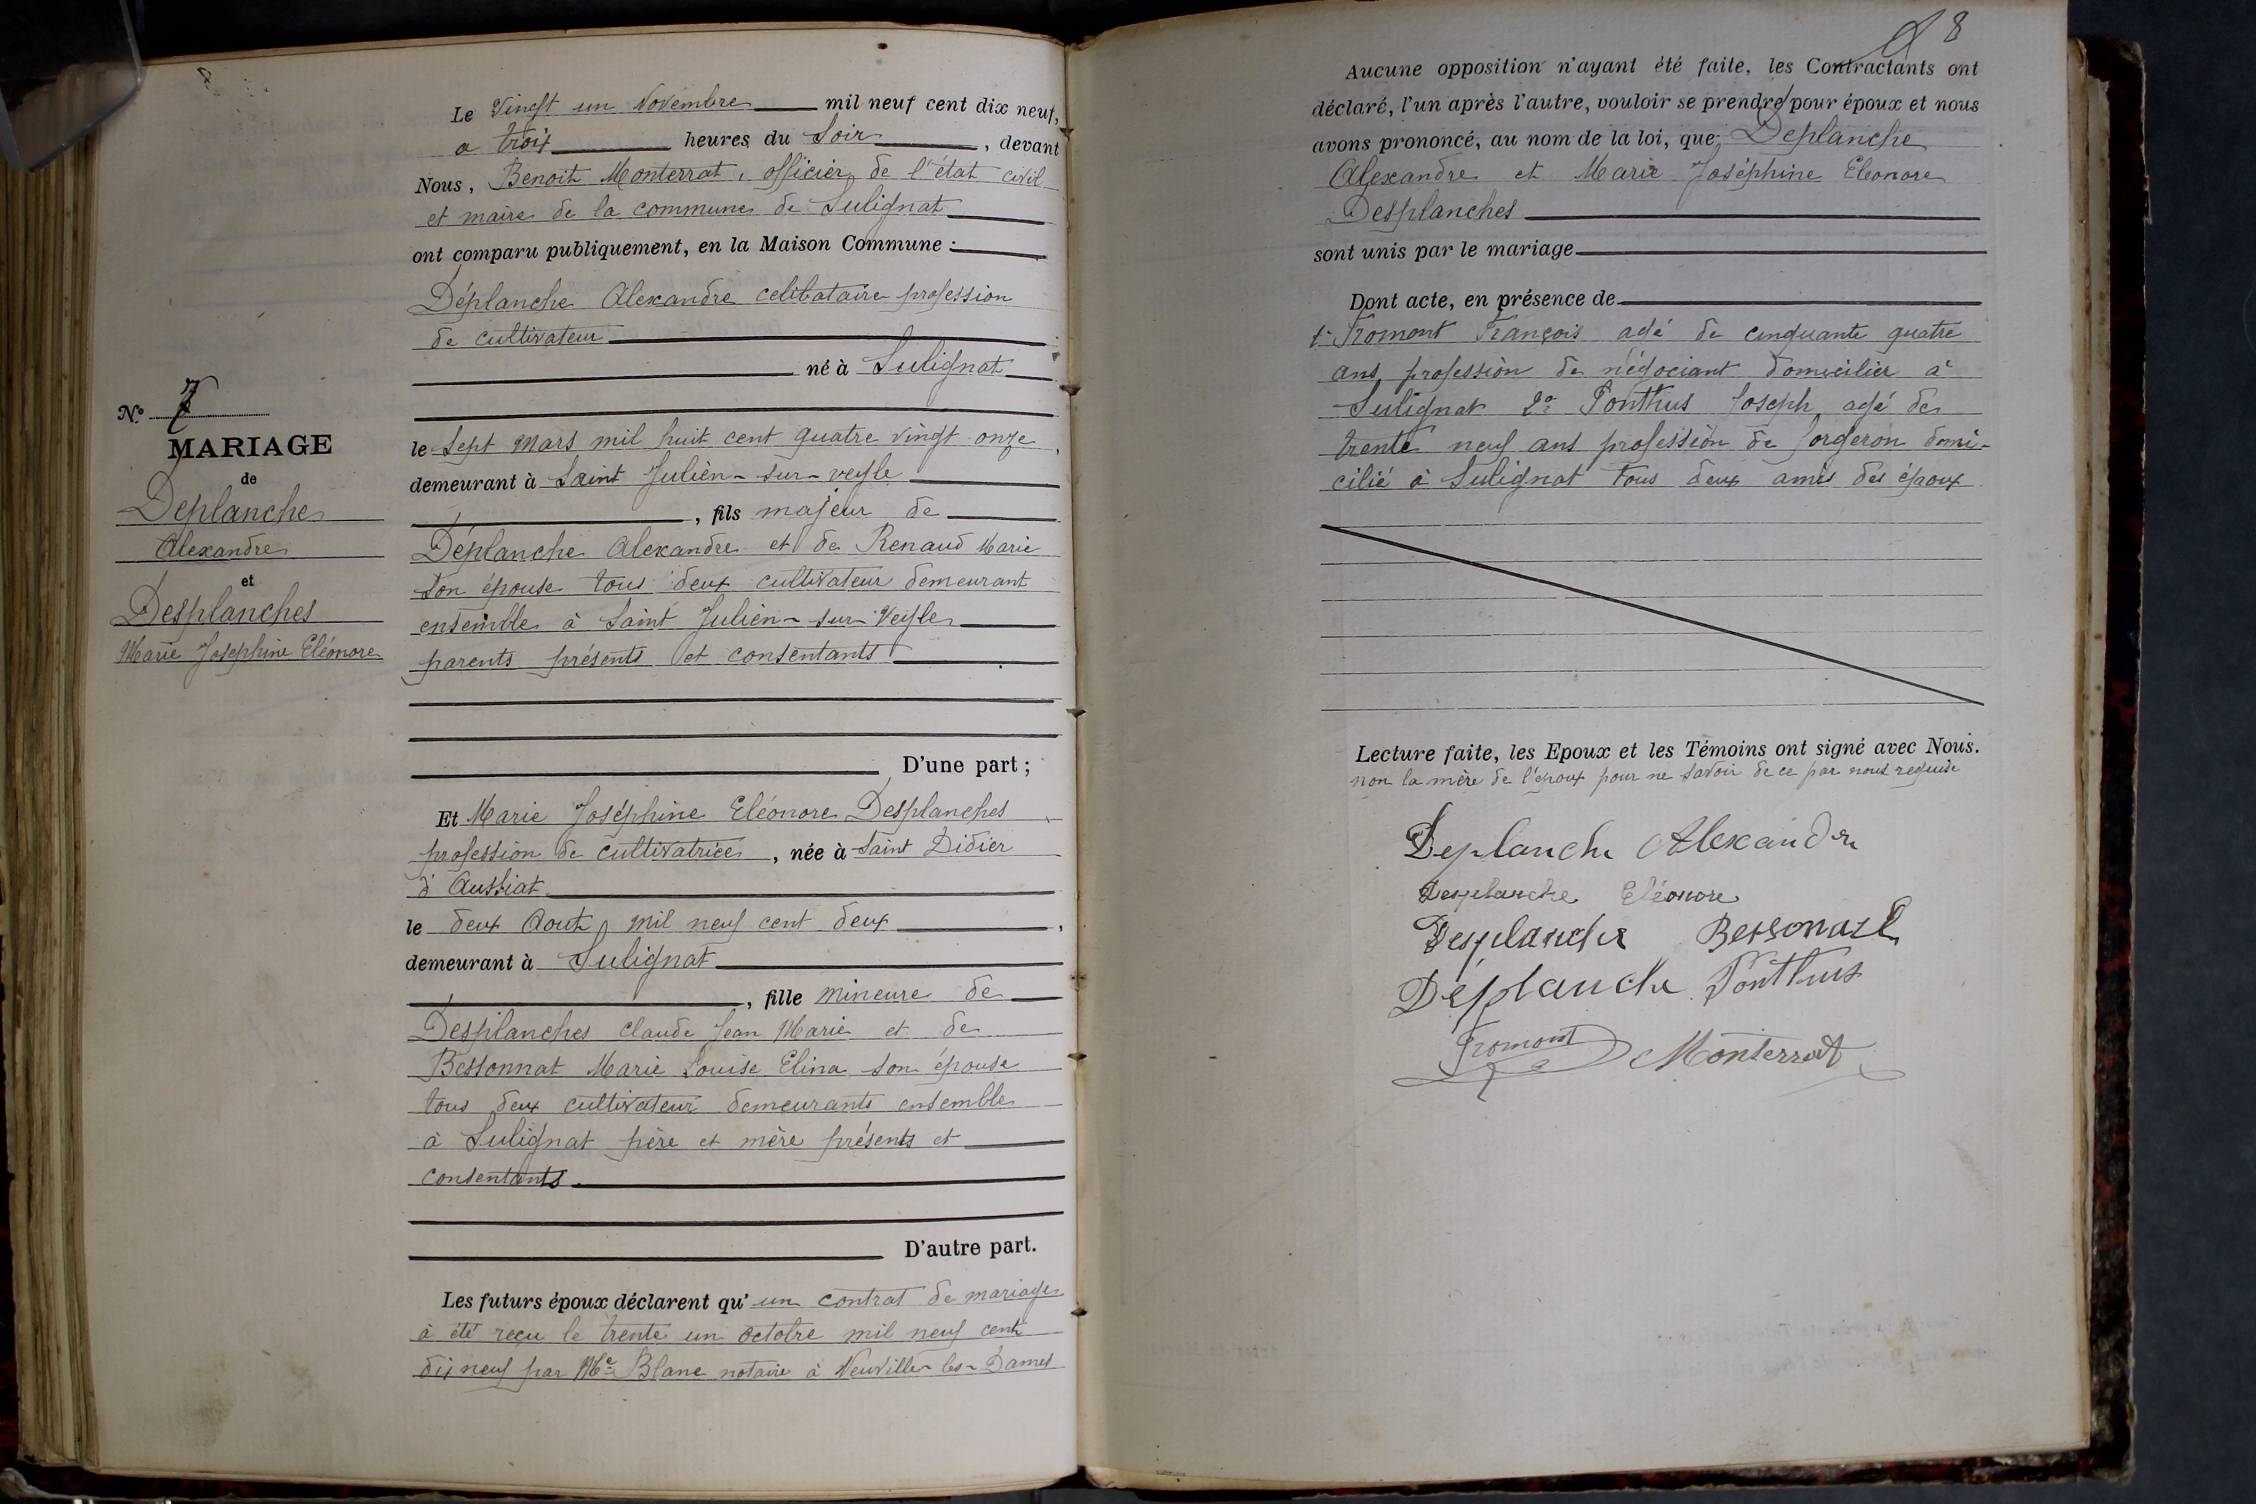 Le Vingt un Novembre mil neuf cent dix neuf,
a trois heures du Soir, devant
Nous, Benoit Monterrat, officier de l'état civil
et maire de la commune de Sulignat
ont comparu publiquement, en la Maison Commune :
Déplanche Alexandre celibataire profession
de cultivateur
né à Sulignat
le Sept mars mil huit cent quatre vingt onze,
demeurant à Saint Julien-sur-veyle
, fils majeur de
Déplanche Alexandre et de Renaud Marie
son épouse tous deux cultivateur demeurant
ensemble à Saint Julien-sur-Veyle
parents présents et consentants
D'une part ;
Et Marie Joséphine Eléonore Desplanches
profession de cultivatrice, née à Saint Didier
d'Aussiat
le deux Aout mil neuf cent deux,
demeurant à Sulignat
, fille mineure de
Desplanches claude Jean Marie et de
Bessonnat Marie Louise Elina son épouse
tous deux cultivateur demeurants ensemble
à Sulignat père et mère présents et
consentants.
D'autre part.
Les futurs époux déclarent qu'un contrat de mariage
à été reçu le trente un octobre mil neuf cent
dix neuf par Me Blanc notaire à Neuville-les-Dames
N° 7
MARIAGE
de
Déplanche
Alexandre
et
Desplanches
Marie Josephine Eléonore
8
Aucune opposition n'ayant été faite, les Contractants ont
déclaré, l'un après l'autre, vouloir se prendre pour époux et nous
avons prononcé, au nom de la loi, que Déplanche
Alexandre et Marie Joséphine Eleonore
Desplanches
sont unis par le mariage
Dont acte, en présence de
1° Fromont François agé de cinquante quatre
ans profession de négociant domicilier à
Sulignat 2° Ponthus Joseph agé de
trente neuf ans profession de forgeron domi-
cilié à Sulignat tous deux amis des époux
Lecture faite, les Epoux et les Témoins ont signé avec Nous.
non la mère de l'époux pour ne savoir de ce par nous requise
Deplanche Alexandre
Desplanche Eléonore
Desplanches Bessonat E
Déplanche Ponthus
Fromont Monterrat